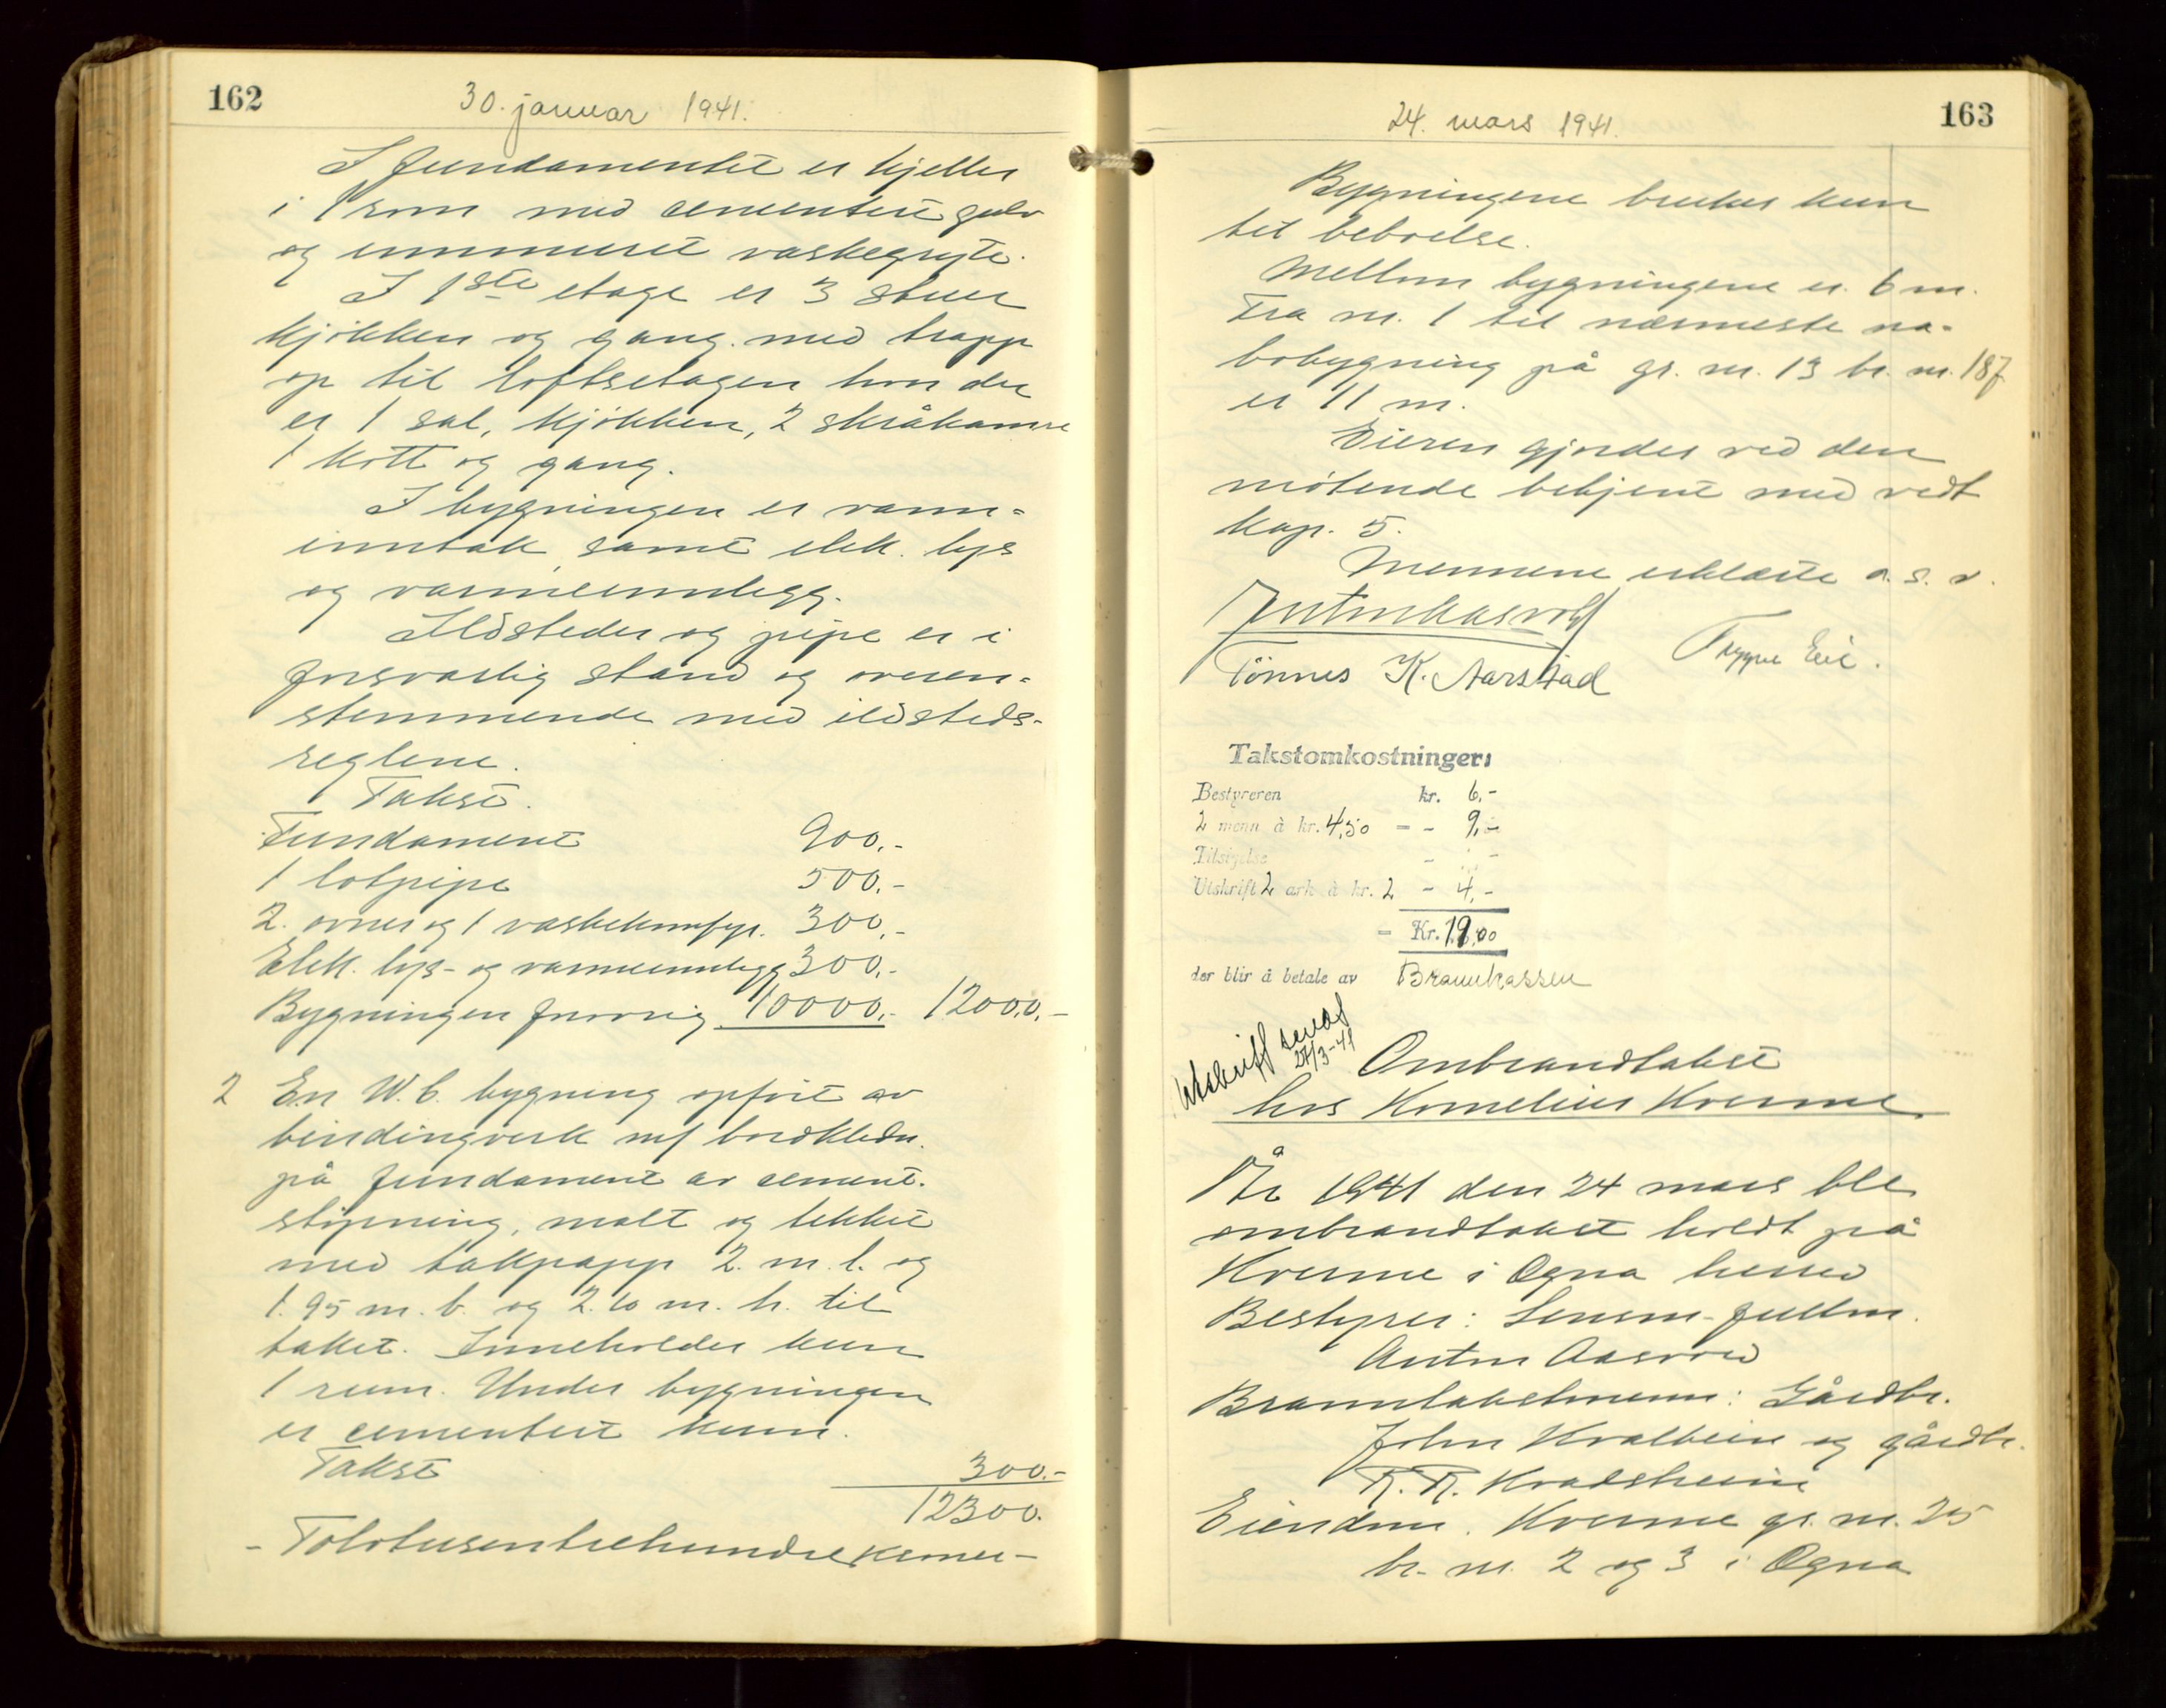 162
30. januar 1941.
I fundamentet er kjeller
i 1 rom med cementert gulv
og innmuret vaskegryte.
I 1ste etage er 3 stuer
kjökken og gang med trapp
op til loftsetagen hvor der
er 1 sal, kjökken, 2 skråkamre
1 kott og gang.
I bygningen er vann-
inntak, samt elek. lys
og varmeinnlegg.
Ildsteder og pipe er i
forsvarlig stand og overen-
stemmende med ildsteds-
reglene.
Takst.
Fundament 900.-
1 lobpipe 500.-
2 ovner og 1 vaskekomfyr. 300.-
Elek. lys- og varmeinnlegg 300.-
Bygningen forövrig 10000.- 12000.-
2 En W.C. bygning opfört av
bindingverk m/ bordkledn.
på fundament av cement-
stöpning, malt og tekket
med takpapp 2. m. l. og
1.95 m. b. og 2.10 m. h. til
taket. Inneholder kun
1 rum. Under bygningen
er cementert kum.
Takst 300.-
12300.
- Tolvtusentrehundrekroner -
163
24. mars 1941.
Bygningene brukes kun
til beboelse.
Mellom bygningene er 6 m.
Fra nr. 1 til nærmeste na-
bobygning på gr. nr. 13 br. nr. 187
er 11 m.
Eieren gjordes ved den
mötende bekjent med vedt
kap. 5.
Mennene erklærte o. s. v.
Anton Aasvold
Tönnes K. Aarstad Trygve Eie.
Takstomkostninger:
Bestyreren kr. 6,-
2 menn à kr. 4,50 - - 9,-
Tilsigelse - -
Utskrift 2 ark à kr. 2 - 4,-
- Kr. 19,00
der blir å betale av Brannkassen
Utskrift send
27/3-41
Ombrandtakst
hos Kornelius Kverme
År 1941 den 24 mars ble
ombrandtakst holdt på
Kverme i Ogna herred
Bestyrer: Lensm-fullm.
Anton Aasvold
Branntakstmenn: Gårdbr.
John Kvalbein og gårdbr.
R. R. Kvadsheim
Eiendom. Kverme gr. nr. 25
br. nr. 2 og 3 i Ogna